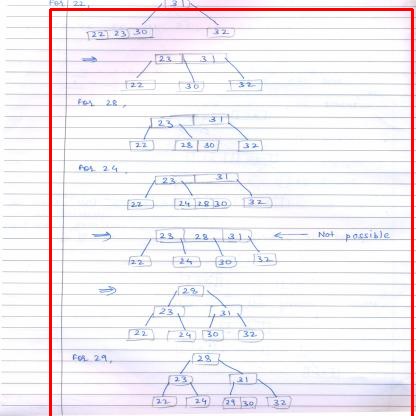 For 22,
31
22 23 30 32
⇒ 23 31
22 30 32
For 28,
23 31
22 28 30 32
For 24,
23 31
22 24 28 30 32
⇒ 23 28 31 ← Not possible
22 24 30 32
⇒ 28
23 31
22 24 30 32
For 29,
28
23 31
22 24 29 30 32